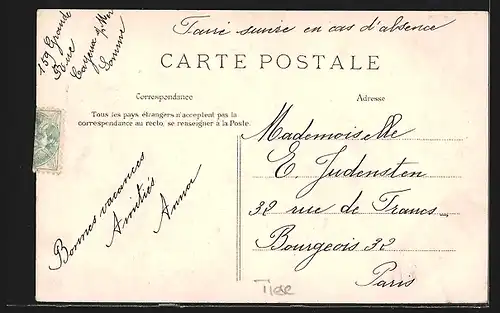 Faire suivre en cas d'absence
159 Grande
Rue
Cayeux s/Mer
Somme
CARTE POSTALE
Correspondance
Adresse
Tous les pays étrangers n'acceptent pas la
correspondance au recto, se renseigner à la Poste.
Bonnes vacances
Amitiés
Anna
Mademoiselle
E. Judensten
32 rue de Francs
Bourgeois 32
Paris